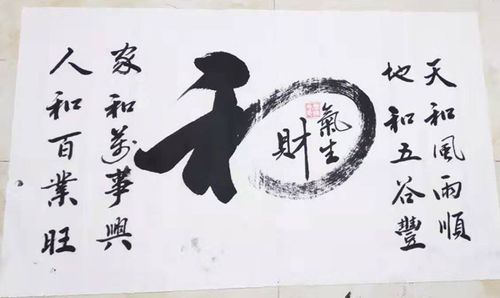 天和風雨順
地和五谷豐
和
氣生
財
家和萬事興
人和百業旺